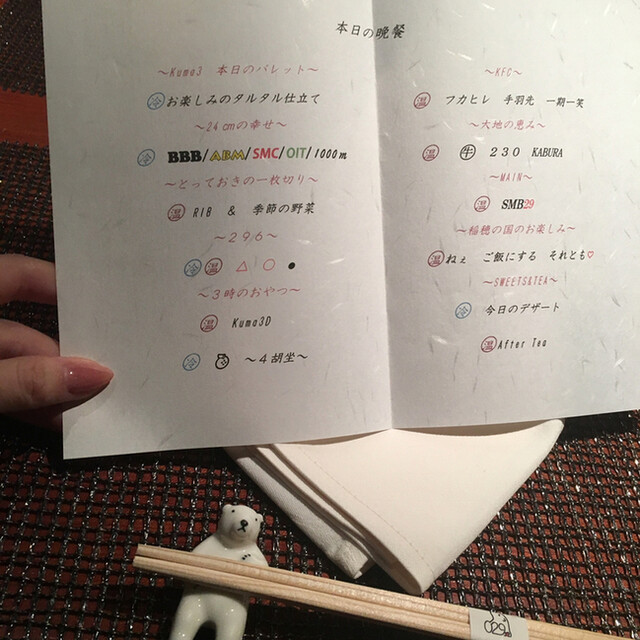 本日の晩餐
～Kuma3 本日のパレット～
冷 お楽しみのタルタル仕立て
～24cmの幸せ～
冷 BBB/ABM/SMC/OIT/1000m
～とっておきの一枚切り～
温 RIB & 季節の野菜
～29/6～
冷 温 △ ○ ●
～3時のおやつ～
温 Kuma3D
冷 ～4胡坐～
～KFC～
温 フカヒレ 手羽先 一期一笑
～大地の恵み～
温 牛 230 KABURA
～MAIN～
温 SMB29
～稲穂の国のお楽しみ～
温 ねぇ ご飯にする それとも♡
～SWEETS&TEA～
冷 今日のデザート
温 After Tea